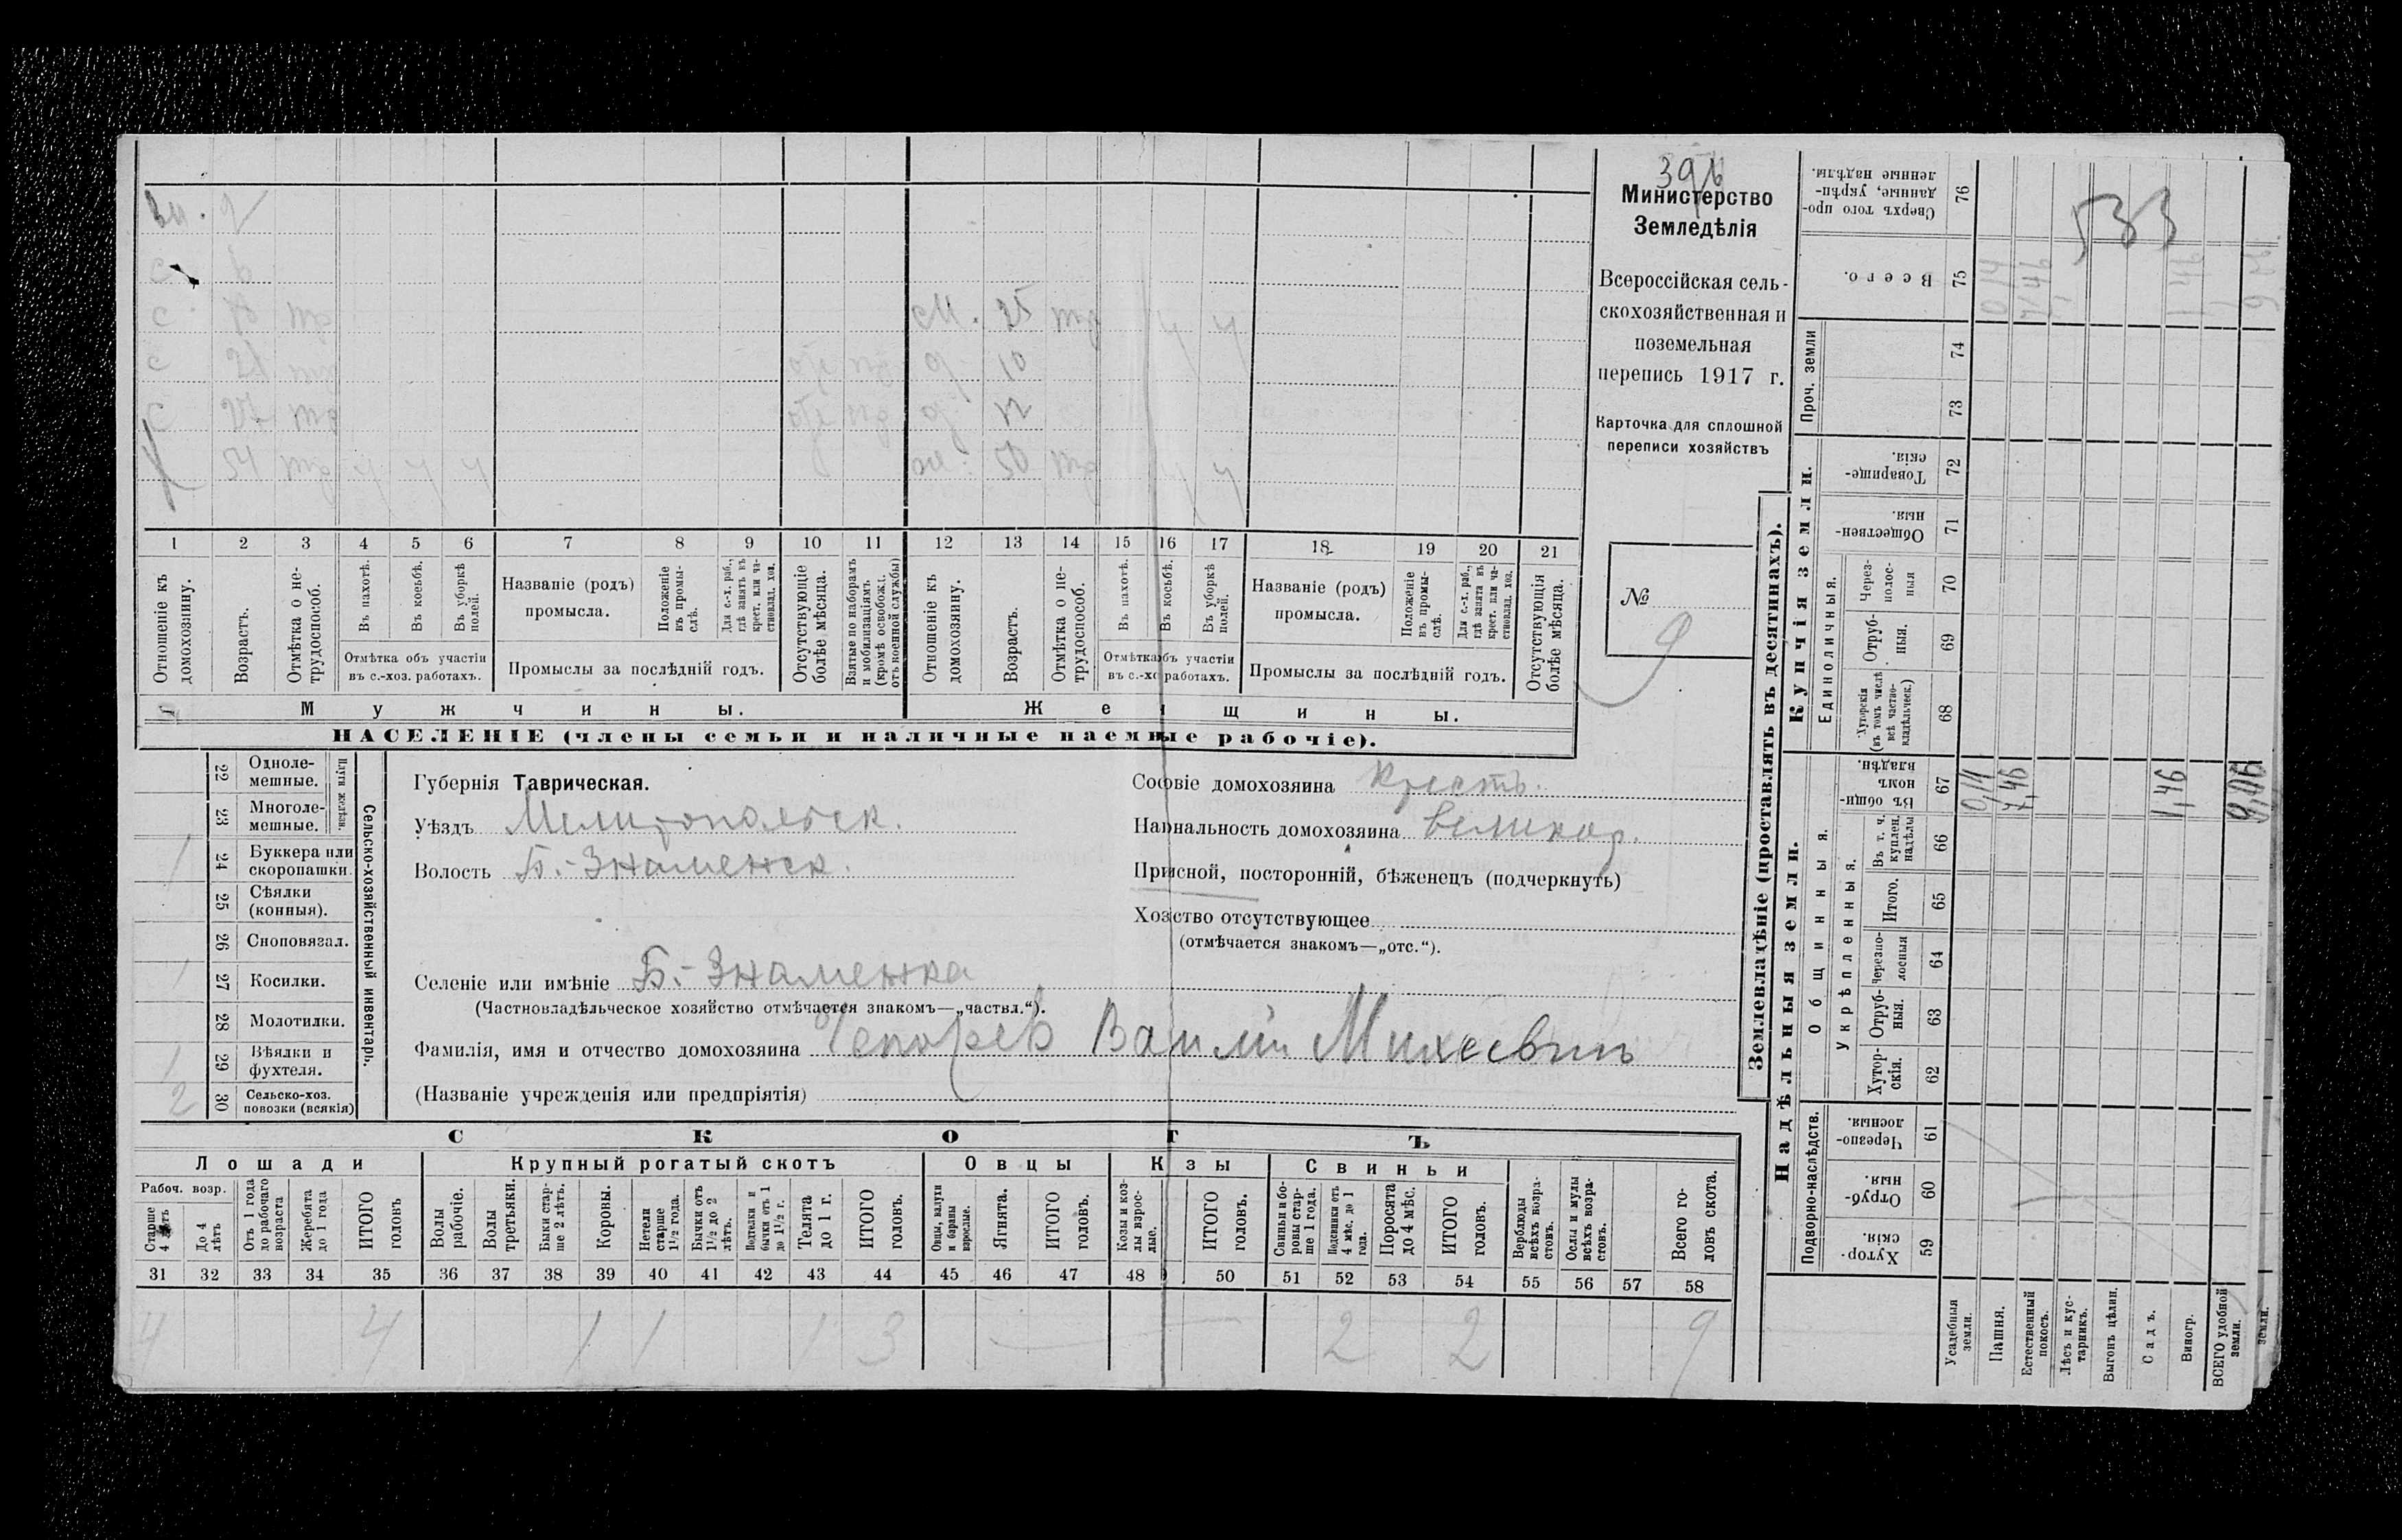 396
Министерство
Земледѣлія
Всероссійская сель-
скохозяйственная и
поземельная
перепись 1917 г.
Карточка для сплошной
переписи хозяйствъ
№ 9
533
с
с м. 35 тд ч ч
с тд д 10
с тд д 12
54 тд ч ч ч ж. 50 тд ч ч
1 2 3 4 5 6 7 8 9 10 11 12 13 14 15 16 17 18 19 20 21
Отношеніе къ домохозяину.
Возрастъ.
Отмѣтка о не-трудоспособ.
Въ пахотѣ.
Въ косьбѣ.
Въ уборкѣ полей.
Отмѣтка объ участіи въ с.-хоз. работахъ.
Названіе (родъ) промысла.
Положеніе въ промы-слѣ.
Для с.-х. раб., гдѣ занять въ крест. или ча-стновлад. хоз.
Промыслы за послѣдній годъ.
Отсутствующіе болѣе мѣсяца.
Взятые по наборамъ и мобилизаціямъ (кромѣ освобожд. отъ военной службы)
Отношеніе къ домохозяину.
Возрастъ.
Отмѣтка о не-трудоспособ.
Въ пахотѣ.
Въ косьбѣ.
Въ уборкѣ полей.
Отмѣтка бъ участіи въ с.-хо работахъ.
Названіе (родъ) промысла.
Положеніе въ промы-слѣ.
Для с.-х. раб., гдѣ занята въ крест. или ча-стновлад. хоз.
Промыслы за послѣдній годъ.
Отсутствующія болѣе мѣсяца.
Мужчины.
Же щины.
НАСЕЛЕНІЕ (члены семьи и наличные наемные рабочіе).
22 Одноле-мешные.
23 Многоле-мешные.
Плуги желѣзн.
1 24 Буккера или скоропашки
25 Сѣялки (конныя).
26 Сноповязал.
1 27 Косилки.
28 Молотилки.
1 29 Вѣялки и фухтеля.
2 30 Сельско-хоз. повозки (всякія)
Сельско-хозяйственный инвентарь.
Губернія Таврическая.
Уѣздъ Мелитопольск.
Волость Б.-Знаменск.
Селеніе или имѣніе Б.-Знаменка
(Частновладѣльческое хозяйство отмѣчается знакомъ—„частвл.“).
Фамилія, имя и отчество домохозяина Чепорев Василий Михеевич
(Названіе учрежденія или предпріятія)
Сосвіе домохозяина Крест.
Нацнальность домохозяина великор.
Приисной, посторонній, бѣженецъ (подчеркнуть)
Хозство отсутствующее
(отмѣчается знакомъ—„отс.“).
СКОТЪ
Лошади
Крупный рогатый скотъ
Овцы
К зы
Свиньи
Рабоч. возр.
Старше 4 лѣтъ
До 4 лѣтъ
Отъ 1 года до рабочаго возраста
Жеребята до 1 года
ИТОГО головъ
Волы рабочіе.
Волы третьяки.
Быки стар-ше 2 лѣтъ.
Коровы.
Нетели старше 1½ года.
Бычки отъ 1½ до 2 лѣтъ.
Подтелки и бычки отъ 1 до 1½ г.
Телята до 1 г.
ИТОГО головъ.
Овцы, валухи и бараны взрослые.
Ягнята.
ИТОГО головъ.
Козы и коз-лы взрос-лые.
ИТОГО головъ.
Свиньи и бо-ровы стар-ше 1 года.
Подсвинки отъ 4 мѣс. до 1 года.
Поросята до 4 мѣс.
ИТОГО головъ.
Верблюды всѣхъ возра-стовъ.
Ослы и мулы всѣхъ возра-стовъ.
Всего го-ловъ скота.
31 32 33 34 35 36 37 38 39 40 41 42 43 44 45 46 47 48 50 51 52 53 54 55 56 57 58
4 4 1 1 1 3 2 2 9
Землевладѣніе (проставлять въ десятинахъ).
Надѣльныя земли.
Купчія земли.
Проч. земли
Подворно-наслѣдств.
Общинныя.
Укрѣпленныя.
Единоличныя.
Сверхъ того про-данные, укрѣп-ленные надѣлы. 76
Всего. 75
74
73
Товарище-скія. 72
Обществен-ныя. 71
Через-полос-ныя 70
Отруб-ныя. 69
Хуторскія (въ томъ числѣ всѣ частно-владѣльческ.) 68
Въ общи-номъ владѣн. 67
Въ т. ч. куплен. надѣлы 66
Итого. 65
Черезпо-лосныя 64
Отруб-ныя. 63
Хутор-скія. 62
Черезпо-лосныя. 61
Отруб-ныя. 60
Хутор-скія. 59
0,14 7,46 1,46 9,06
Усадебныя земли.
Пашня.
Естественный покосъ.
Лѣсъ и кус-тарникъ.
Выгонъ цѣлин.
Садъ.
Виногр.
ВСЕГО удобной земли.
земли.